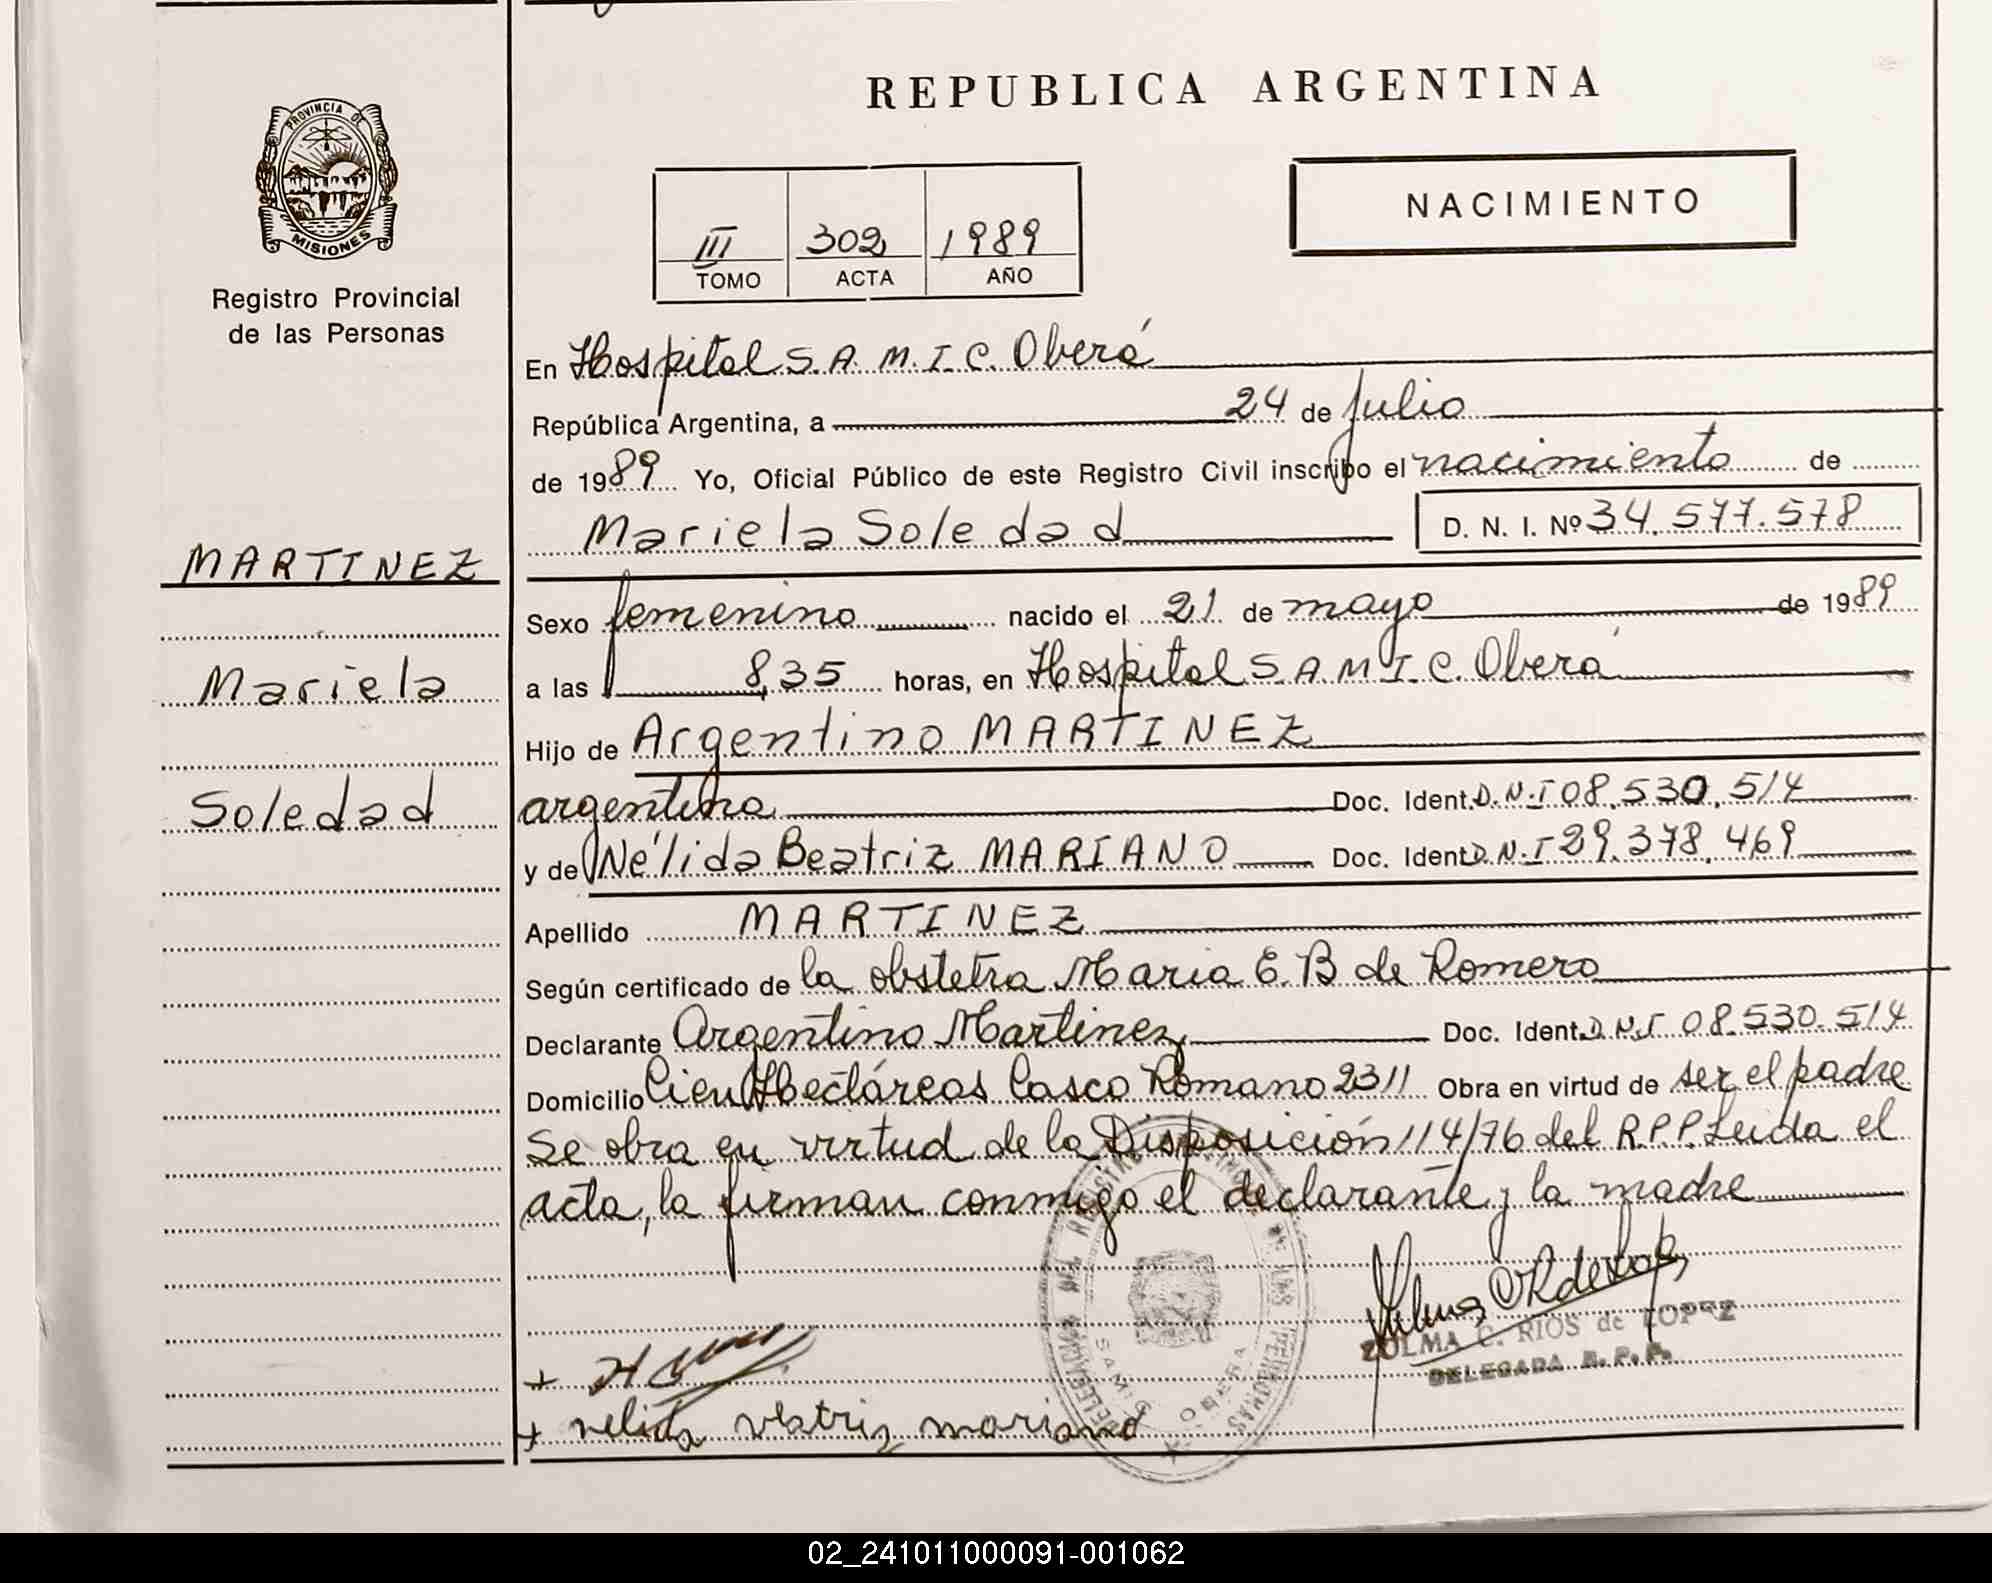 REPUBLICA ARGENTINA
PROVINCIA DE
MISIONES
Registro Provincial
de las Personas
NACIMIENTO
III 302 1989
TOMO ACTA AÑO
En Hospital S.A.M.I.C. Oberá
República Argentina, a 24 de julio
de 1989 Yo, Oficial Público de este Registro Civil inscribo el nacimiento de
Mariela Soledad D. N. I. Nº 34.577.578
MARTINEZ
Mariela
Soledad
Sexo femenino nacido el 21 de mayo de 1989
a las 8,35 horas, en Hospital S.A.M.I.C. Oberá
Hijo de Argentino MARTINEZ
argentina Doc. Ident. D.N.I 08.530.514
y de Nélida Beatriz MARIANO Doc. Ident D.N.I 29.378.469
Apellido MARTINEZ
Según certificado de la obstetra Maria E. B de Romero
Declarante Argentino Martinez Doc. Ident. D.N.I 08.530.514
Domicilio Cien Hectáreas Casco Romano 2311 Obra en virtud de ser el padre
Se obra en virtud de la Disposición 114/76 del R.P.P. Leida el
acta, la firman conmigo el declarante y la madre
ZULMA C. RIOS de LOPEZ
DELEGADA R.P.P.
+
+ nelida veatriz mariano
DELEGACION DEL REGISTRO PROVINCIAL DE LAS PERSONAS
SAMIC OBERA
02_241011000091-001062